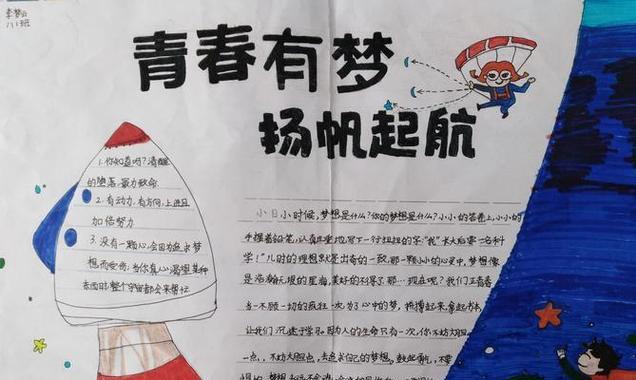 李梦
八(2)班
青春有梦
扬帆起航
1.你知道吗?清醒
的堕落,最为致命.
2.有动力,有方向,上进且
加倍努力
3.没有一颗心,会因为追求梦
想而受伤,当你真心渴望某种
东西时,整个宇宙都会来帮忙
小时候,梦想是什么?你的梦想是什么?小小的答卷上,小小的
手握着铅笔,认真
写下一个
的字"我"长大后要当名科
学!"儿时的理想总是出奇的一致,那一颗小小的心灵中,梦想像
是浩瀚无垠的星海,美好的不得了那…现在呢?我们正青春
当一不顾一切的疯狂一次,为了心中的梦,
起来,拿起书本,
让我们沉迷于学习,因为人的生命只有一次,你不妨大胆
一点,不妨大胆点,去追求自己的梦想,鼓起勇气,不要